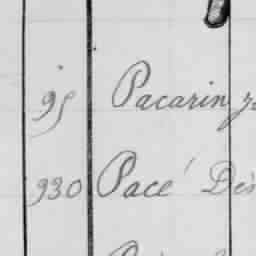 95 Pacarin
930 Pacé Dés